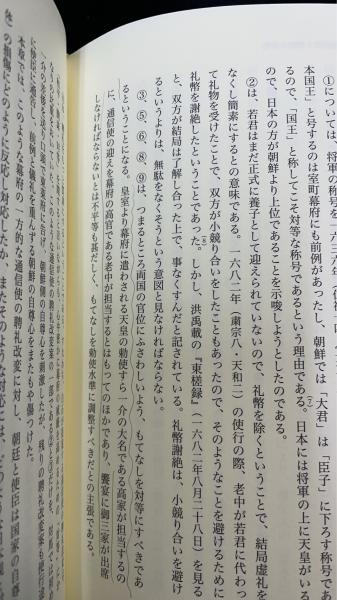 ①については、将軍の号を一六三六年
本国王」と号するのは室町幕府にも前例があったし、朝鮮では「大君」は「臣子」に下ろす称号であ
るので、「国王」と称してこそ対等な称号であるという理由である。(7)日本には将軍の上に天皇がいる
ので、日本の方が朝鮮より上位であることを示唆しようとしたのである。
②は、若君はまだ正式に養子として迎えられていないので、礼幣を除くということで、結局虚礼を
なくし簡素にするとの意味である。一六八二年(粛宗八・天和二)の使行の際、老中が若君に代わっ
て礼物を受けたことで、双方が小競り合いをしたこともあったので、そのようなことを避けるために
礼幣を謝絶したということであった。(8)しかし、洪禹載の『東槎録』(一六八二年八月二十八日)を見る
と、双方が結局は了解し合った上で、事なくすんだと記されている。礼幣謝絶は、小競り合いを避け
るというよりは、無駄をなくそうという意図と見なければならない。
③、⑤、⑥、⑧、⑨は、つまるところ両国の官位にふさわしいよう、もてなしを対等にすべきであ
るということになる。皇室より幕府に遣わされる天皇の勅使すら一介の大名である高家が担当するの
に、通信使の迎えを幕府の高官である老中が担当するとはもってのほかであり、饗宴に御三家が出席
しなければならないとは不平等も甚だしく、もてなしを勅使水準に調整すべきだとの主張である。
に仲臣に通告し、前例と儀礼を重んずる朝鮮の自尊心をまたもや傷つけた。
本章では、このような幕府の一方的な通信使の聘礼改変に対し、朝廷と使臣は国家の自尊
の損傷にどのように反応し対応したか、またそのような対応